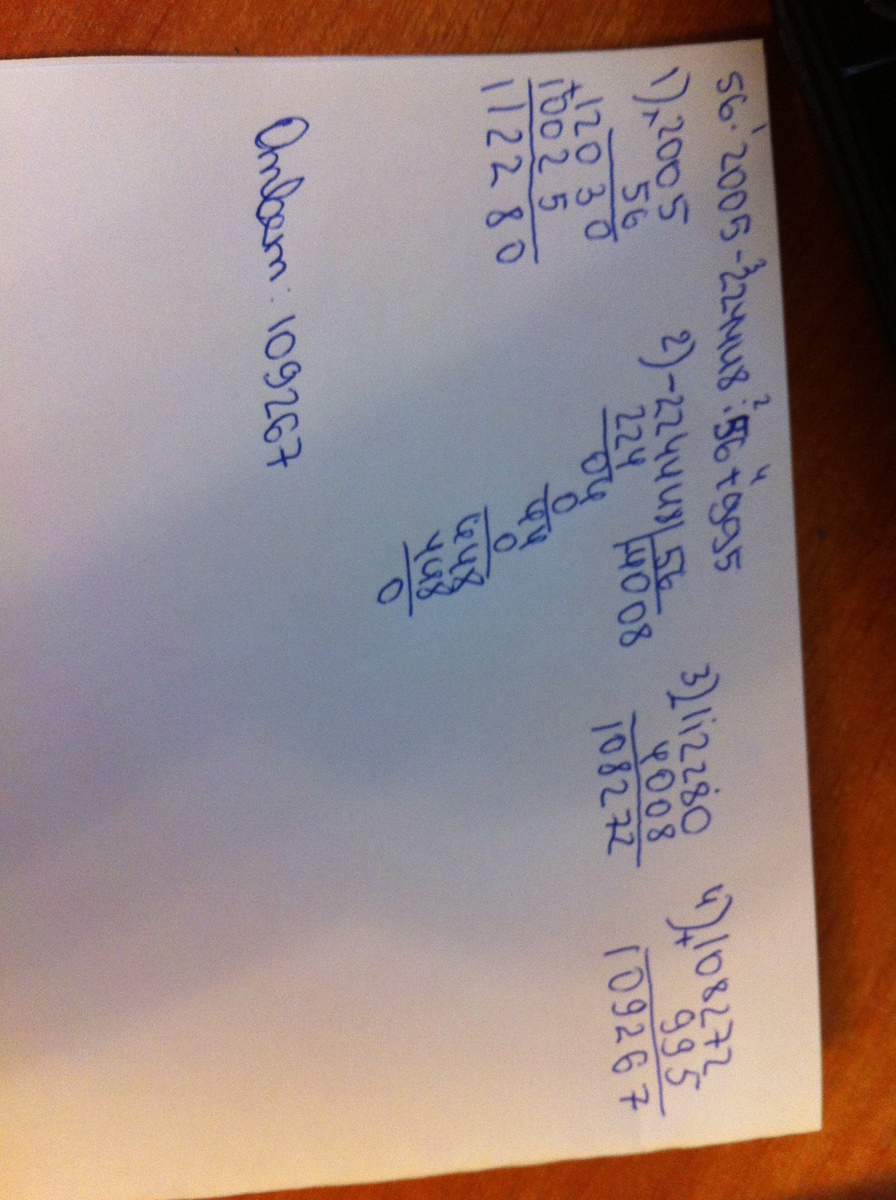 56 · 2005 - 224448 : 56 + 995
1 3 2 4
1) × 2005
56
12030
+ 10025
112280
2) - 224448 | 56
224 | 4008
04
0
44
0
448
448
0
3) 112280
4008
108272
4) + 108272
995
109267
Ответ: 109267